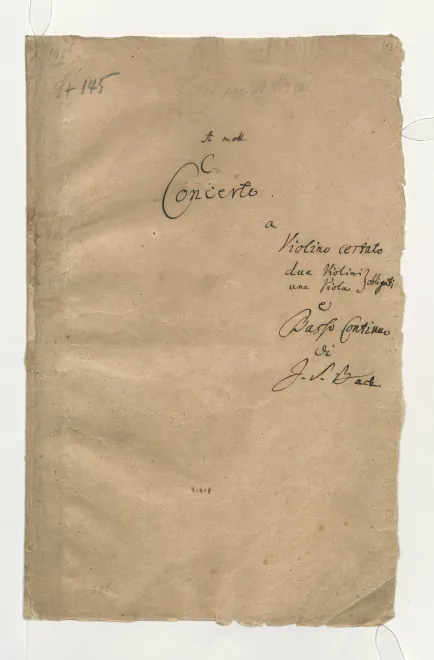 St 145
A moll
Concerto
a
Violino certato
due Violini
una Viola } obligati
e
Basso Continuo
di
J. S. Bach.